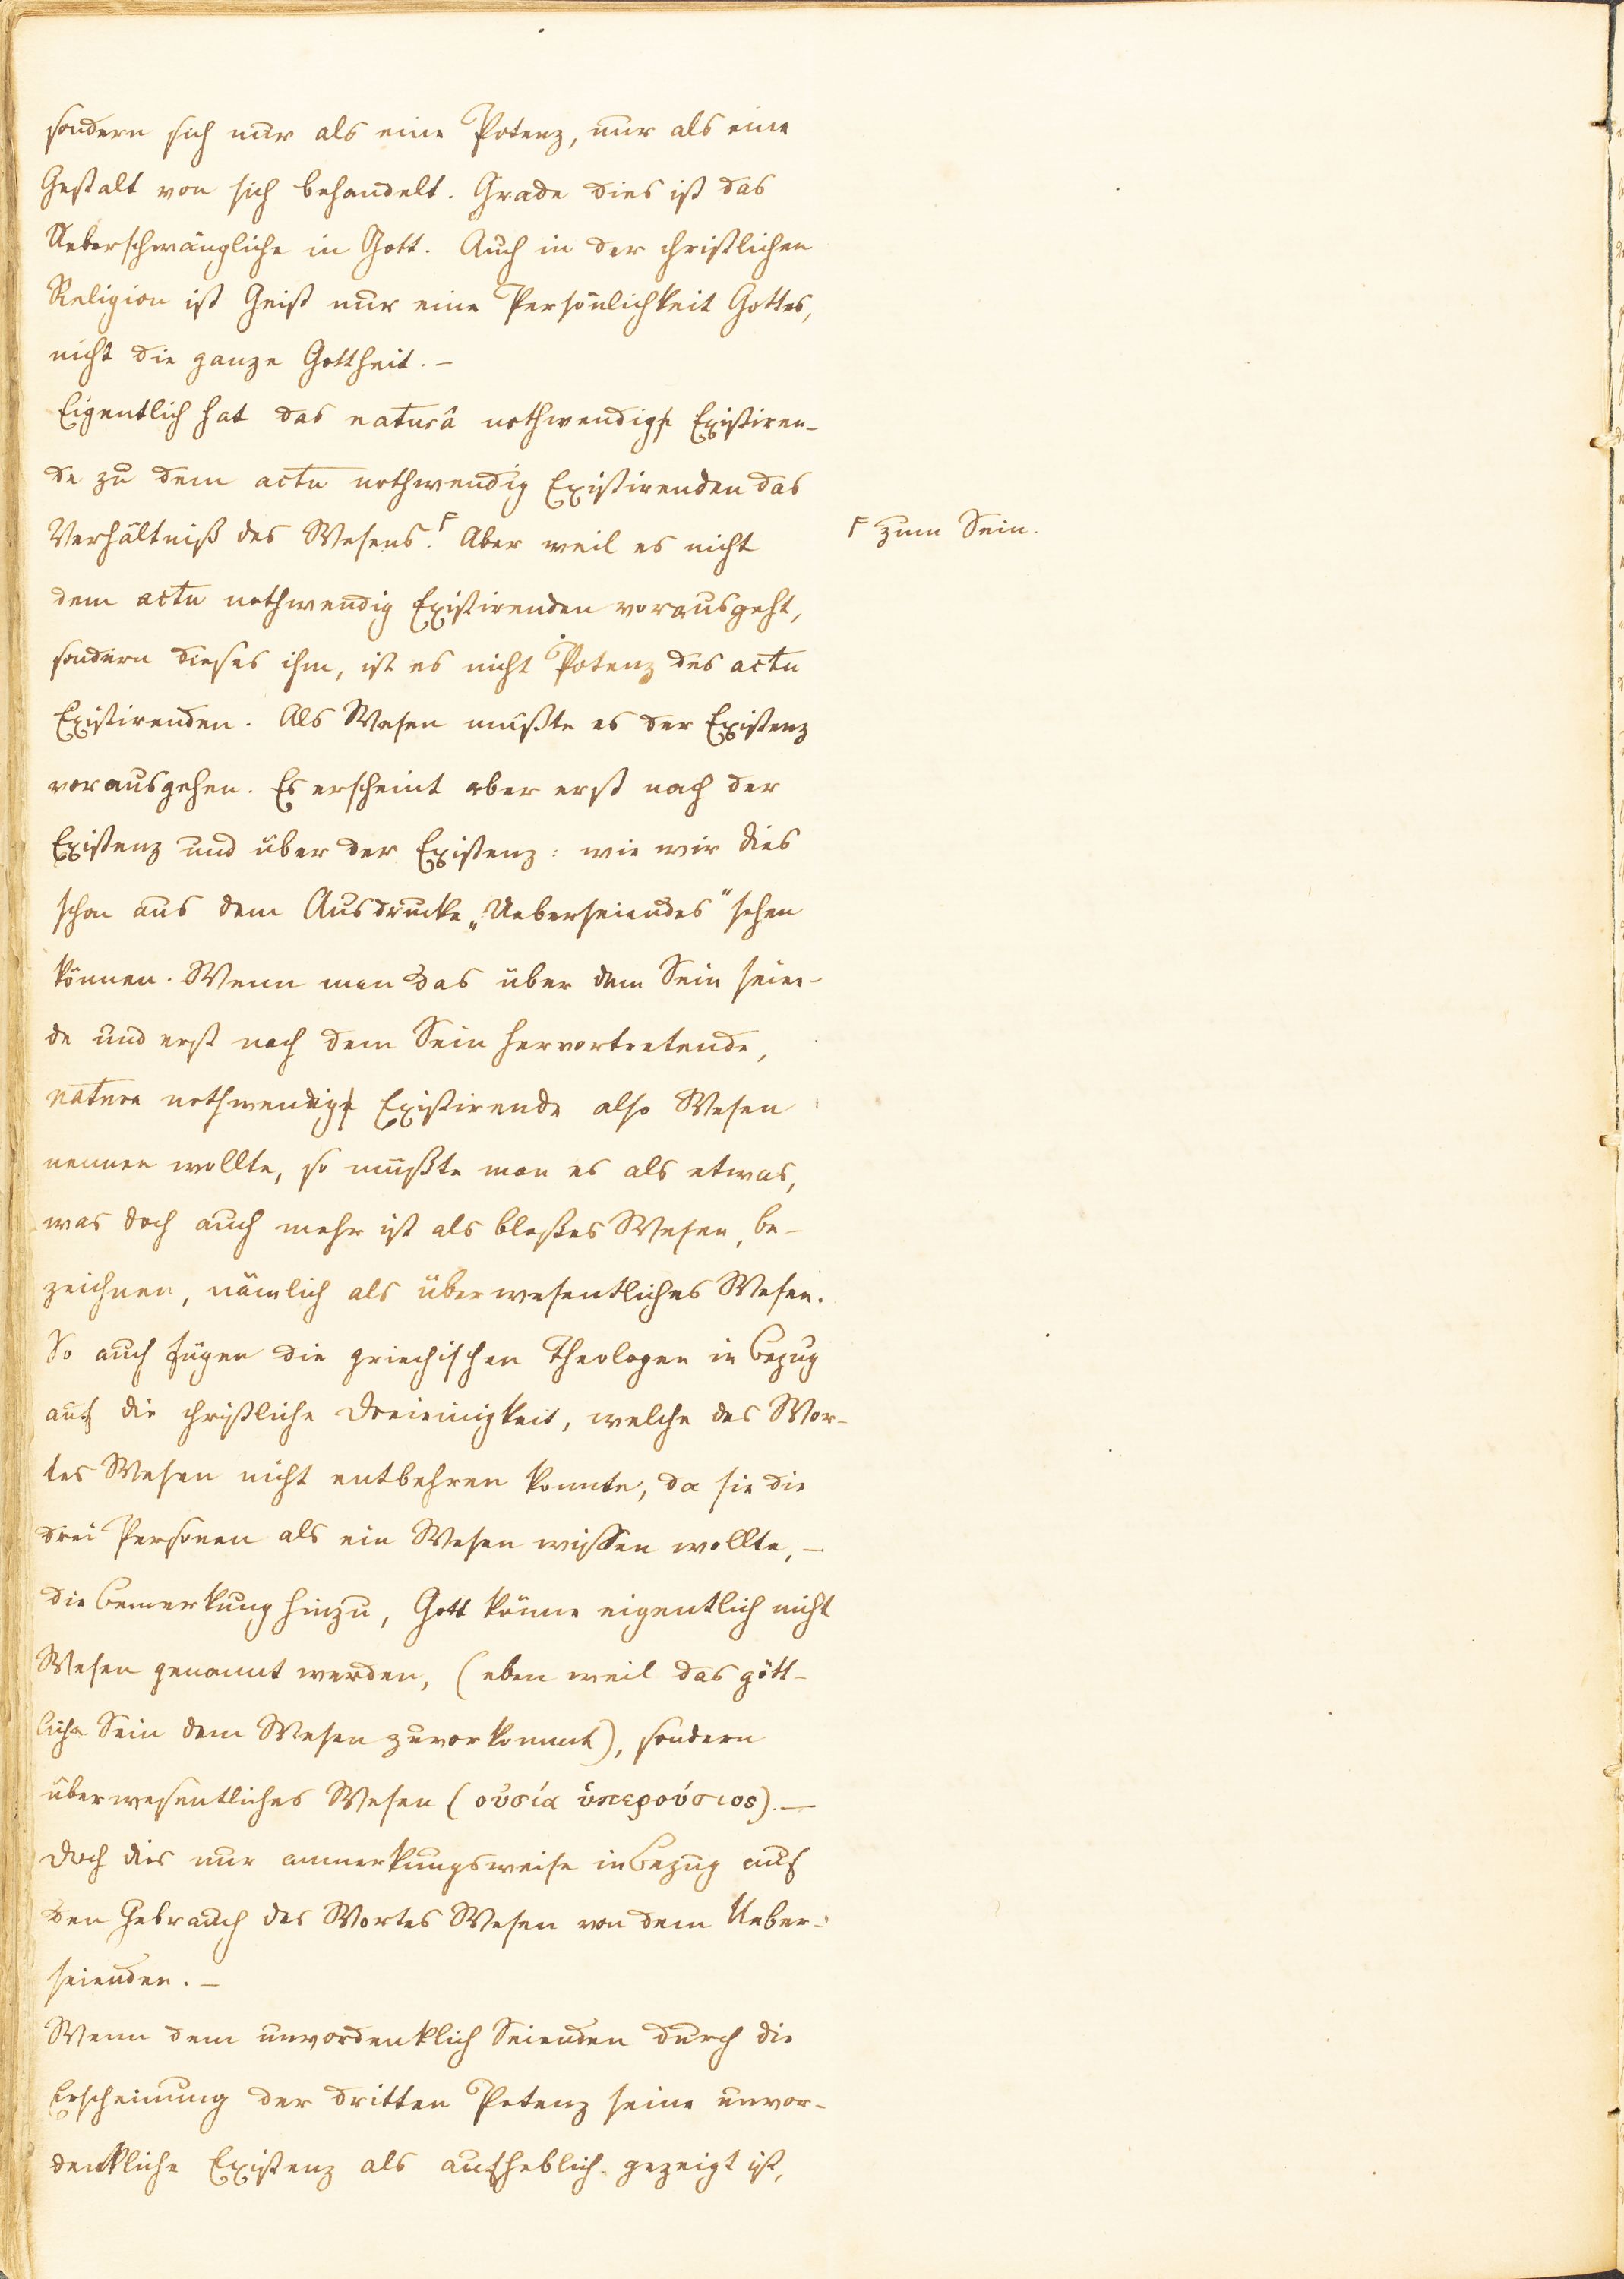 sondern sich nur als eine Potenz, nur als eine
Gestalt von sich behandelt. Grade dies ist das
Ueberschwängliche in Gott. Auch in der christlichen
Religion ist Geist nur eine Persönlichkeit Gottes,
nicht die ganze Gottheit. –
Eigentlich hat das naturâ nothwendig Existiren-
de zu dem actu nothwendig Existirenden das
Verhältniß des Wesens.Γ Aber weil es nicht
Γ zum Sein.
dem actu nothwendig Existirenden vorausgeht,
sondern dieses ihm, ist es nicht Potenz des actu
Existirenden. Als Wesen müßte es der Existenz
vorausgehen. Es erscheint aber erst nach der
Existenz und über der Existenz: wie wir dies
schon aus dem Ausdrucke „Ueberseiendes“ sehen
können. Wenn man das über dem Sein seien-
de und erst nach dem Sein hervortretende,
natura nothwendig Existirende also Wesen
nennen wollte, so müßte man es als etwas,
was doch auch mehr ist als bloßes Wesen, be-
zeichnen, nämlich als überwesentliches Wesen.
So auch fügen die griechischen Theologen in Bezug
auf die christliche Dreieinigkeit, welche des Wor-
tes Wesen nicht entbehren konnte, da sie die
drei Personen als ein Wesen wissen wollte, –
die Bemerkung hinzu, Gott könne eigentlich nicht
Wesen genannt werden, (eben weil das gött-
liche Sein dem Wesen zuvorkommt), sondern
überwesentliches Wesen (οὐσία ὑπερούσιος). –
Doch dies nur anmerkungsweise in Bezug auf
den Gebrauch des Wortes Wesen von dem Ueber-
seienden. –
Wenn dem unvordenklich Seienden durch die
Erscheinung der dritten Potenz seine unvor-
denkliche Existenz als aufheblich gezeigt ist,